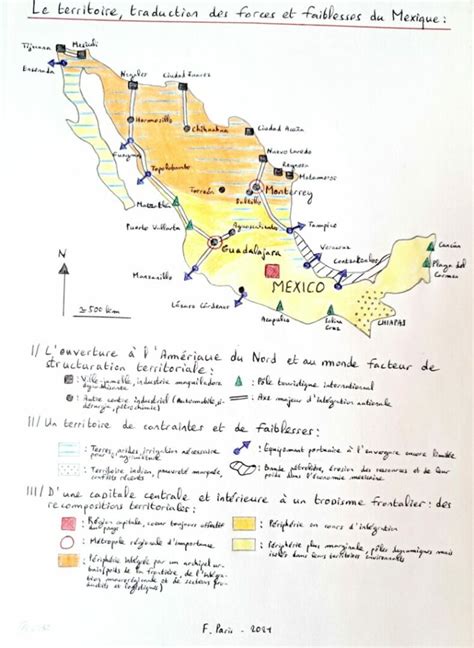 Le territoire, traduction des forces et faiblesses du Mexique :
Tijuana
Mexicali
Ensenada
Nogales
Ciudad Juarez
Hermosillo
Chihuahua
Ciudad Acuña
Guaymas
Nuevo Laredo
Topolobampo
Reynosa
Matamoros
Torreón
Monterrey
Saltillo
Mazatlán
Tampico
Puerto Vallarta
Aguascalientes
Veracruz
Cancún
Guadalajara
Coatzacoalcos
Playa del Carmen
Manzanillo
N
MEXICO
Lázaro Cárdenas
≥ 500 km
Acapulco
Salina Cruz
CHIAPAS
I/ L'ouverture à l'Amérique du Nord et au monde facteur de
structuration territoriale :
: Ville-jumelle, industrie maquiladora
: Pôle touristique international
: Autre centre industriel (Automobile, sidérurgie, pétrochimie)
: Axe majeur d'intégration nationale
II/ Un territoire de contraintes et de faiblesses :
: Terres arides, irrigation nécessaire
pour l'agriculture
: Equipement portuaire à l'envergure encore limitée
: Territoire indien, pauvreté marquée,
conflits récents
: Bande pétrolière, érosion des ressources et de leur
poids dans l'économie mexicaine
III/ D'une capitale centrale et intérieure à un tropisme frontalier : des
recompositions territoriales :
: Région capitale, coeur toujours
du pays
: Périphérie en cours d'intégration
: Métropole régionale d'importance
: Périphérie plus marginale, pôles dynamiques mais
isolés dans leurs territoires environnants
: Périphérie intégrée par un archipel urbain
de la frontière, de l'intégration
et de secteurs productifs et logistiques
F. Paris - 2021